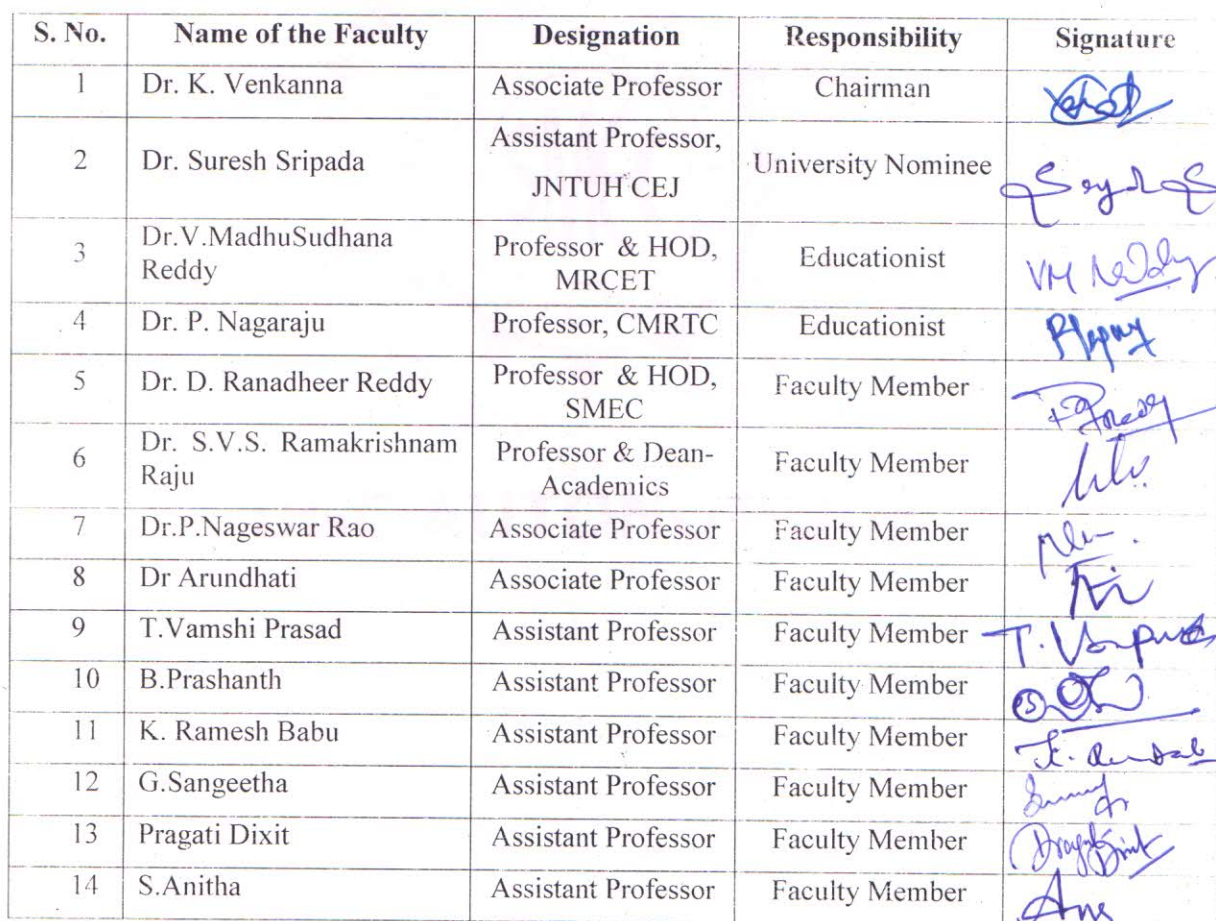 S. No. Name of the Faculty Designation Responsibility Signature
1 Dr. K. Venkanna Associate Professor Chairman
2 Dr. Suresh Sripada Assistant Professor, University Nominee
JNTUH CEJ
3 Dr.V.MadhuSudhana Professor & HOD, Educationist VM Reddy
Reddy MRCET
4 Dr. P. Nagaraju Professor, CMRTC Educationist
5 Dr. D. Ranadheer Reddy Professor & HOD, Faculty Member
SMEC
6 Dr. S.V.S. Ramakrishnam Professor & Dean- Faculty Member
Raju Academics
7 Dr.P.Nageswar Rao Associate Professor Faculty Member
8 Dr Arundhati Associate Professor Faculty Member
9 T.Vamshi Prasad Assistant Professor Faculty Member
10 B.Prashanth Assistant Professor Faculty Member
11 K. Ramesh Babu Assistant Professor Faculty Member
12 G.Sangeetha Assistant Professor Faculty Member
13 Pragati Dixit Assistant Professor Faculty Member
14 S.Anitha Assistant Professor Faculty Member